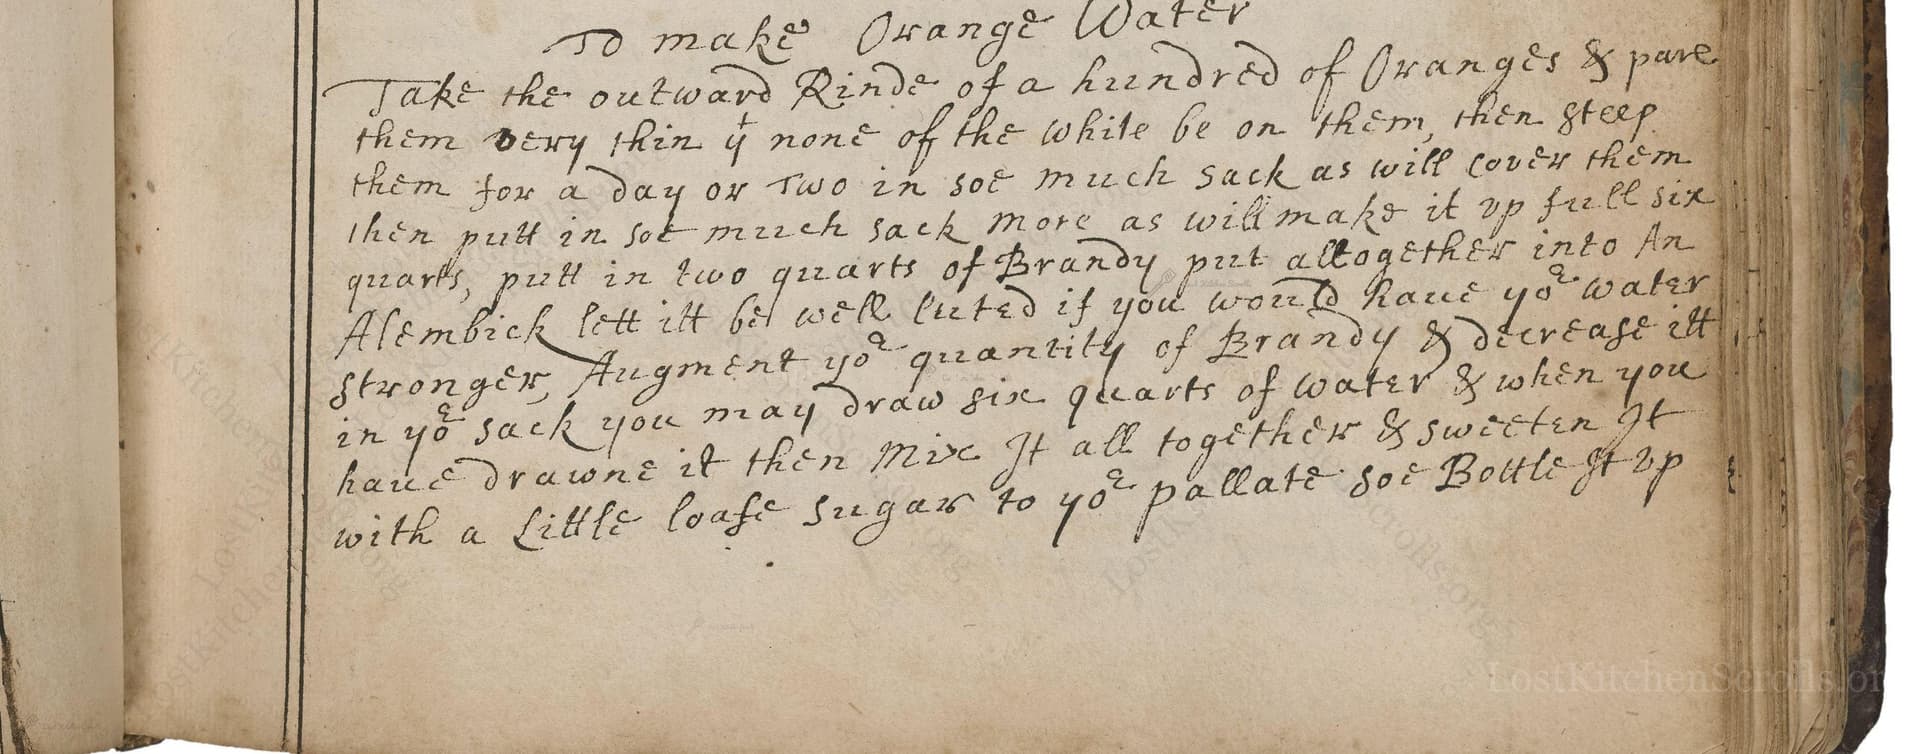 To make Orange Water
Take the outward Rinde of a hundred of Oranges & pare
them very thin yt none of the white be on them, then steep
them for a day or Two in soe much sack as will cover them
then putt in soe much sack more as will make it vp full six
quarts, putt in two quarts of Brandy put alltogether into An
Alembick lett itt be well luted if you would haue yor water
stronger, Augment yor quantity of Brandy & decrease itt
in yor sack you may draw six quarts of water & when you
haue drawne it then Mix It all together & sweeten It
with a Little loafe sugar to yor pallate soe Bottle It vp
LostKitchenScrolls.or